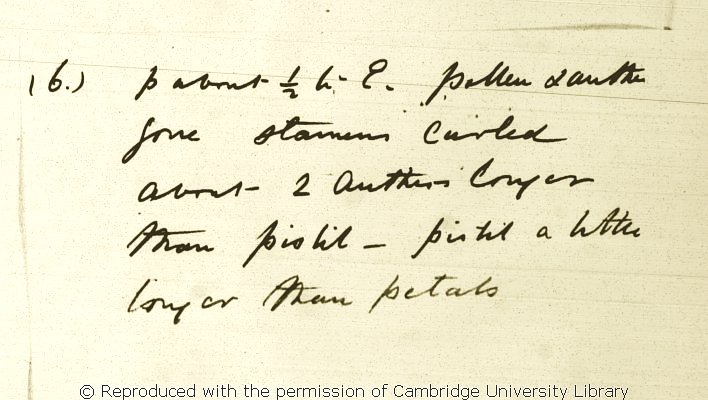 (6.) p about ½ h- E. pollen & anthe
gone stamens curled
about 2 anthers longer
than pistil - pistil a little
longer than petals
© Reproduced with the permission of Cambridge University Library